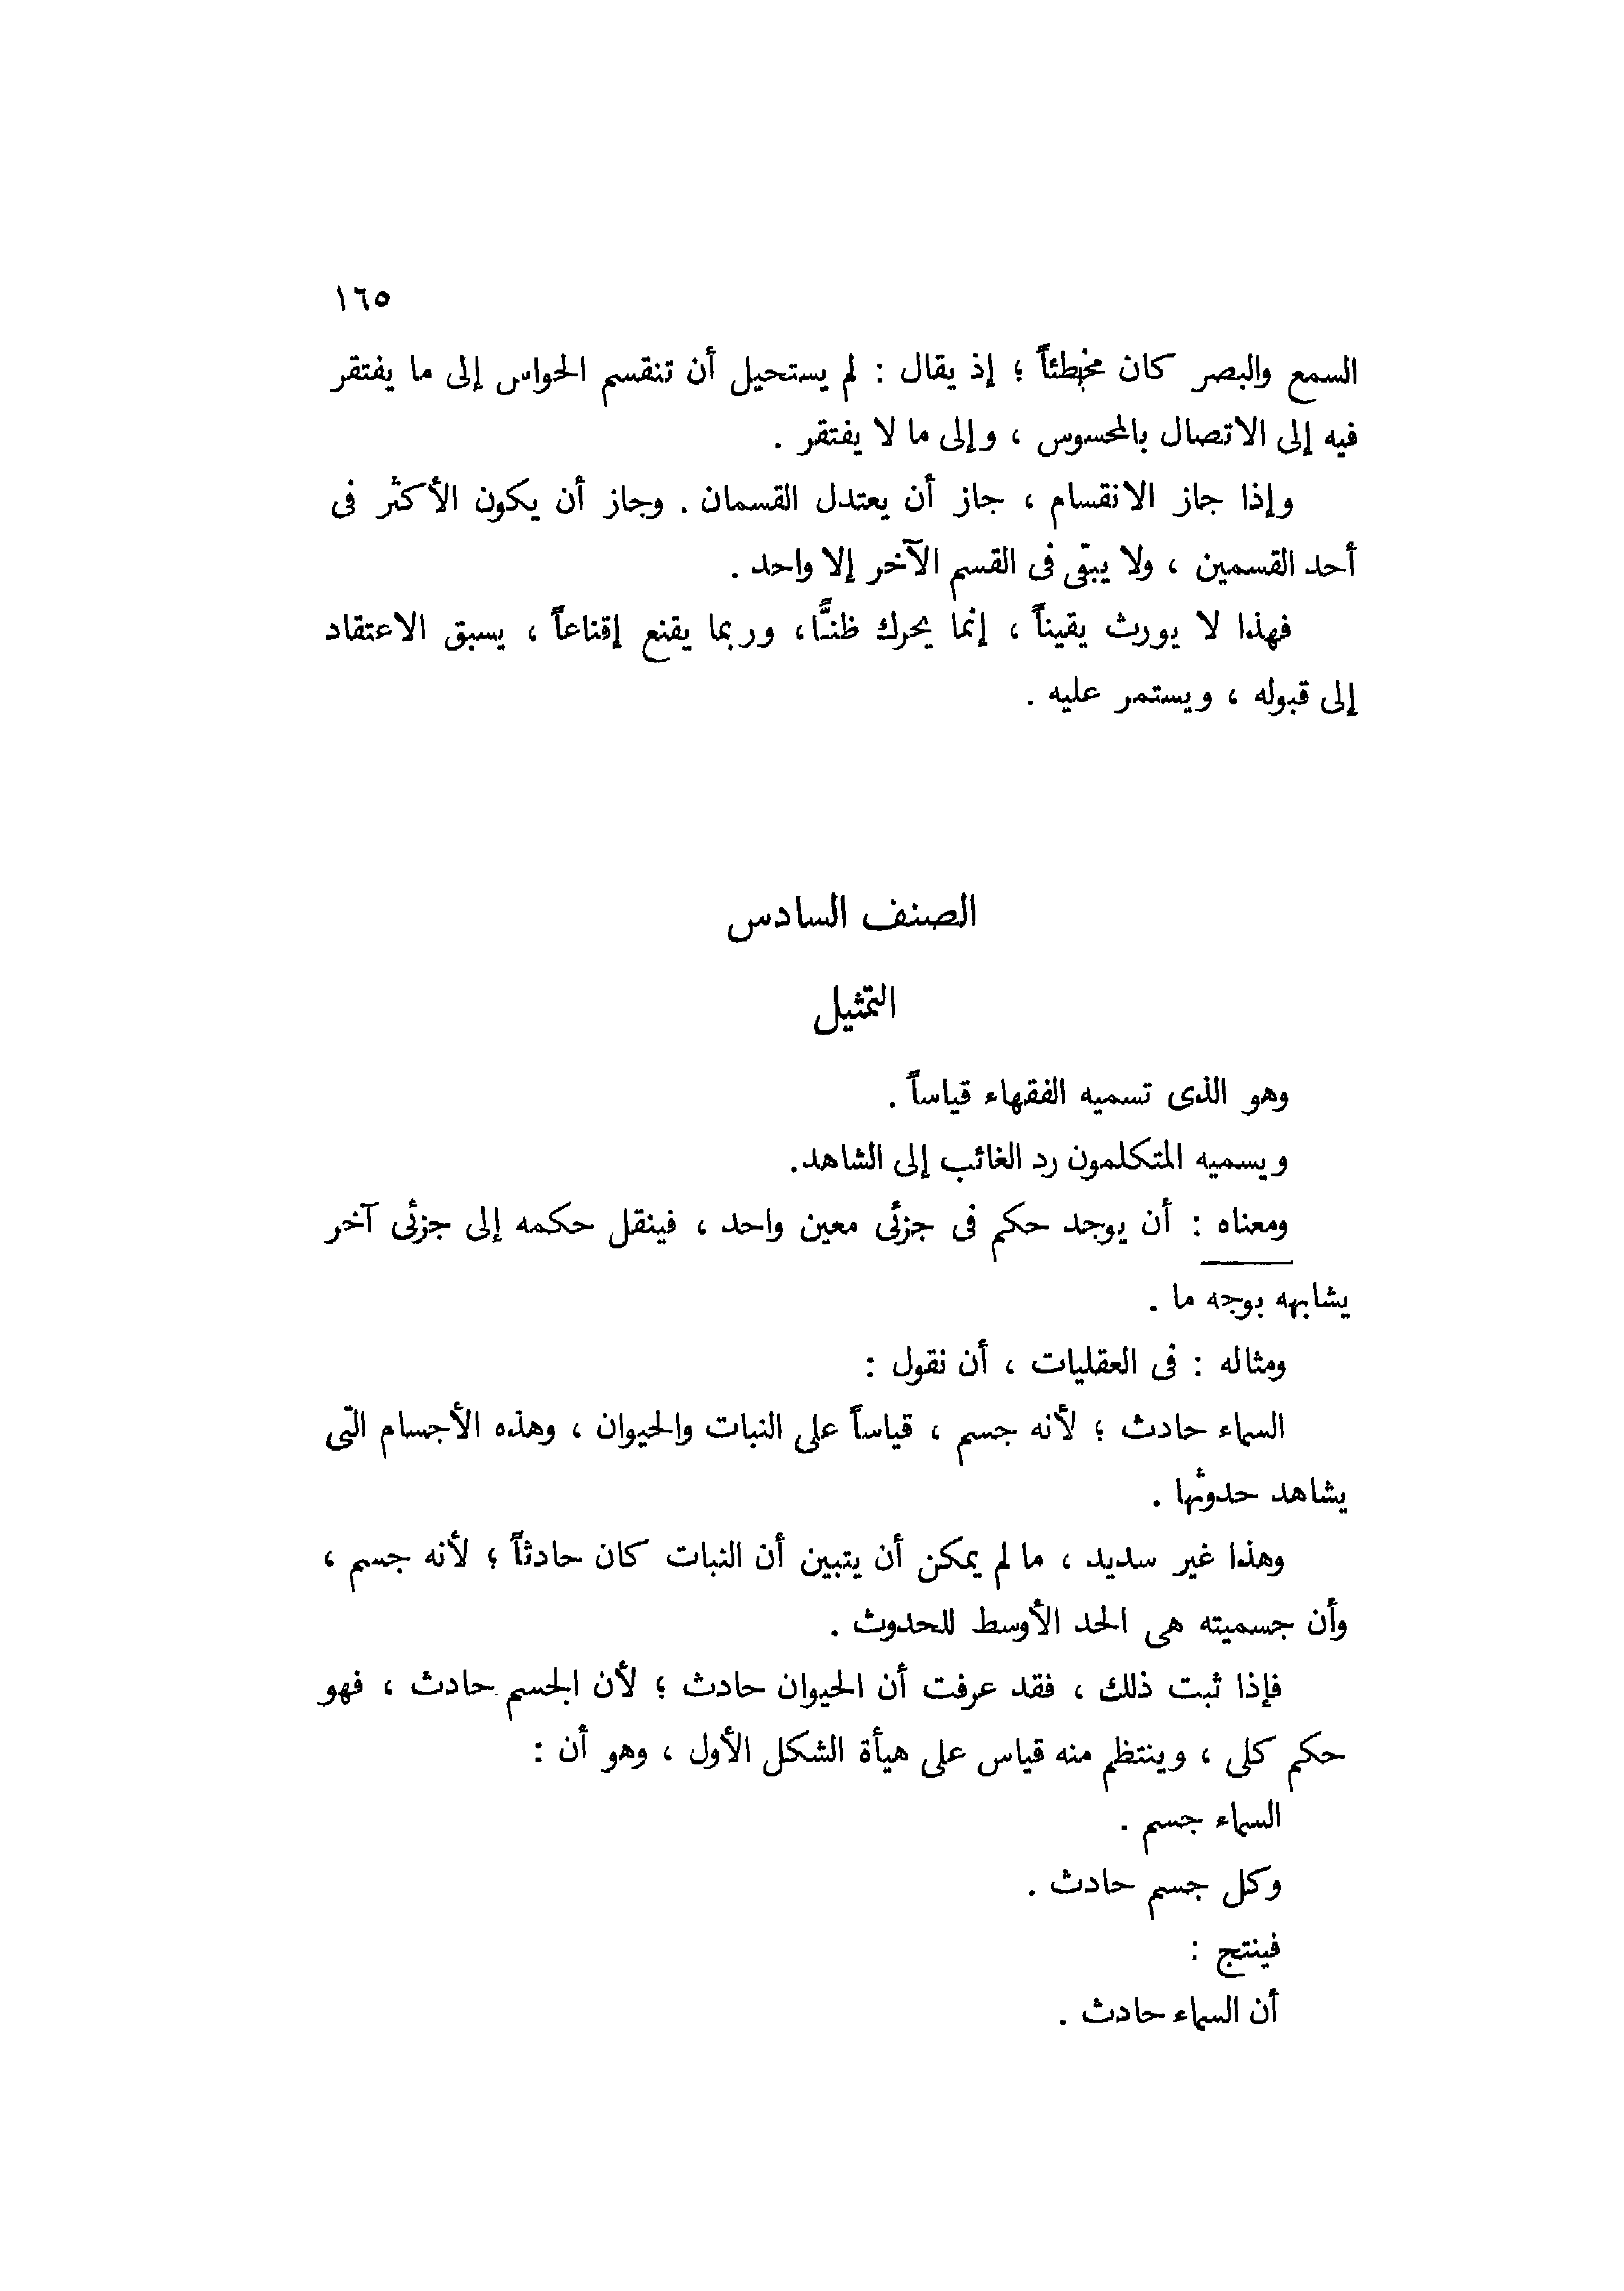 ١٦٥
السمع والبصر كان مخطئاً ؛ إذ يقال : لم يستحيل أن تنقسم الحواس إلى ما يفتقر
فيه إلى الاتصال بالمحسوس ، وإلى ما لا يفتقر .
وإذا جاز الانقسام ، جاز أن يعتدل القسمان . وجاز أن يكون الأكثر فى
أحد القسمين ، ولا يبقى فى القسم الآخر إلا واحد .
فهذا لا يورث يقيناً ، إنما يحرك ظنًّا، وربما يقنع إقناعاً ، يسبق الاعتقاد
إلى قبوله ، ويستمر عليه .
الصنف السادس
التمثيل
وهو الذى تسميه الفقهاء قياساً .
ويسميه المتكلمون رد الغائب إلى الشاهد.
ومعناه : أن يوجد حكم فى جزئى معين واحد ، فينقل حكمه إلى جزئى آخر
يشابهه بوجه ما .
ومثاله : فى العقليات ، أن نقول :
السماء حادث ؛ لأنه جسم ، قياساً على النبات والحيوان ، وهذه الأجسام التى
يشاهد حدوثها .
وهذا غير سديد ، ما لم يمكن أن يتبين أن النبات كان حادثاً ؛ لأنه جسم ،
وأن جسميته هى الحد الأوسط للحدوث .
فإذا ثبت ذلك ، فقد عرفت أن الحيوان حادث ؛ لأن الجسم حادث ، فهو
حكم كلى ، وينتظم منه قياس على هيأة الشكل الأول ، وهو أن :
السماء جسم .
وكل جسم حادث .
فينتج :
أن السماء حادث .